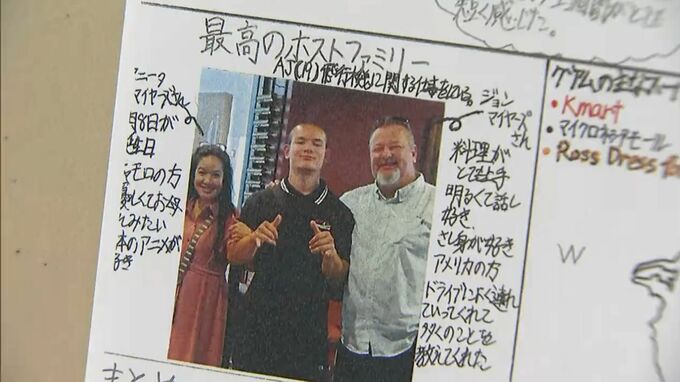 短く感じた。
最高のホストファミリー
AJ(19)飛行機に関する仕事をしてる。
アニータ
マイヤーズさん
明日が
生日
チャモロの方
優しくてお母
さんみたい
本のアニメが
好き
ジョン
マイヤーズ
さん
料理が
とても上手
明るくて話し
好き、
さし身が好き
アメリカの方
ドライブによく連れ
ていってくれて
多くのことを
教えてくれた
グアムの主な
• Kmart
• マイクロネシアモール
• Ross Dress fo
W
まとめ